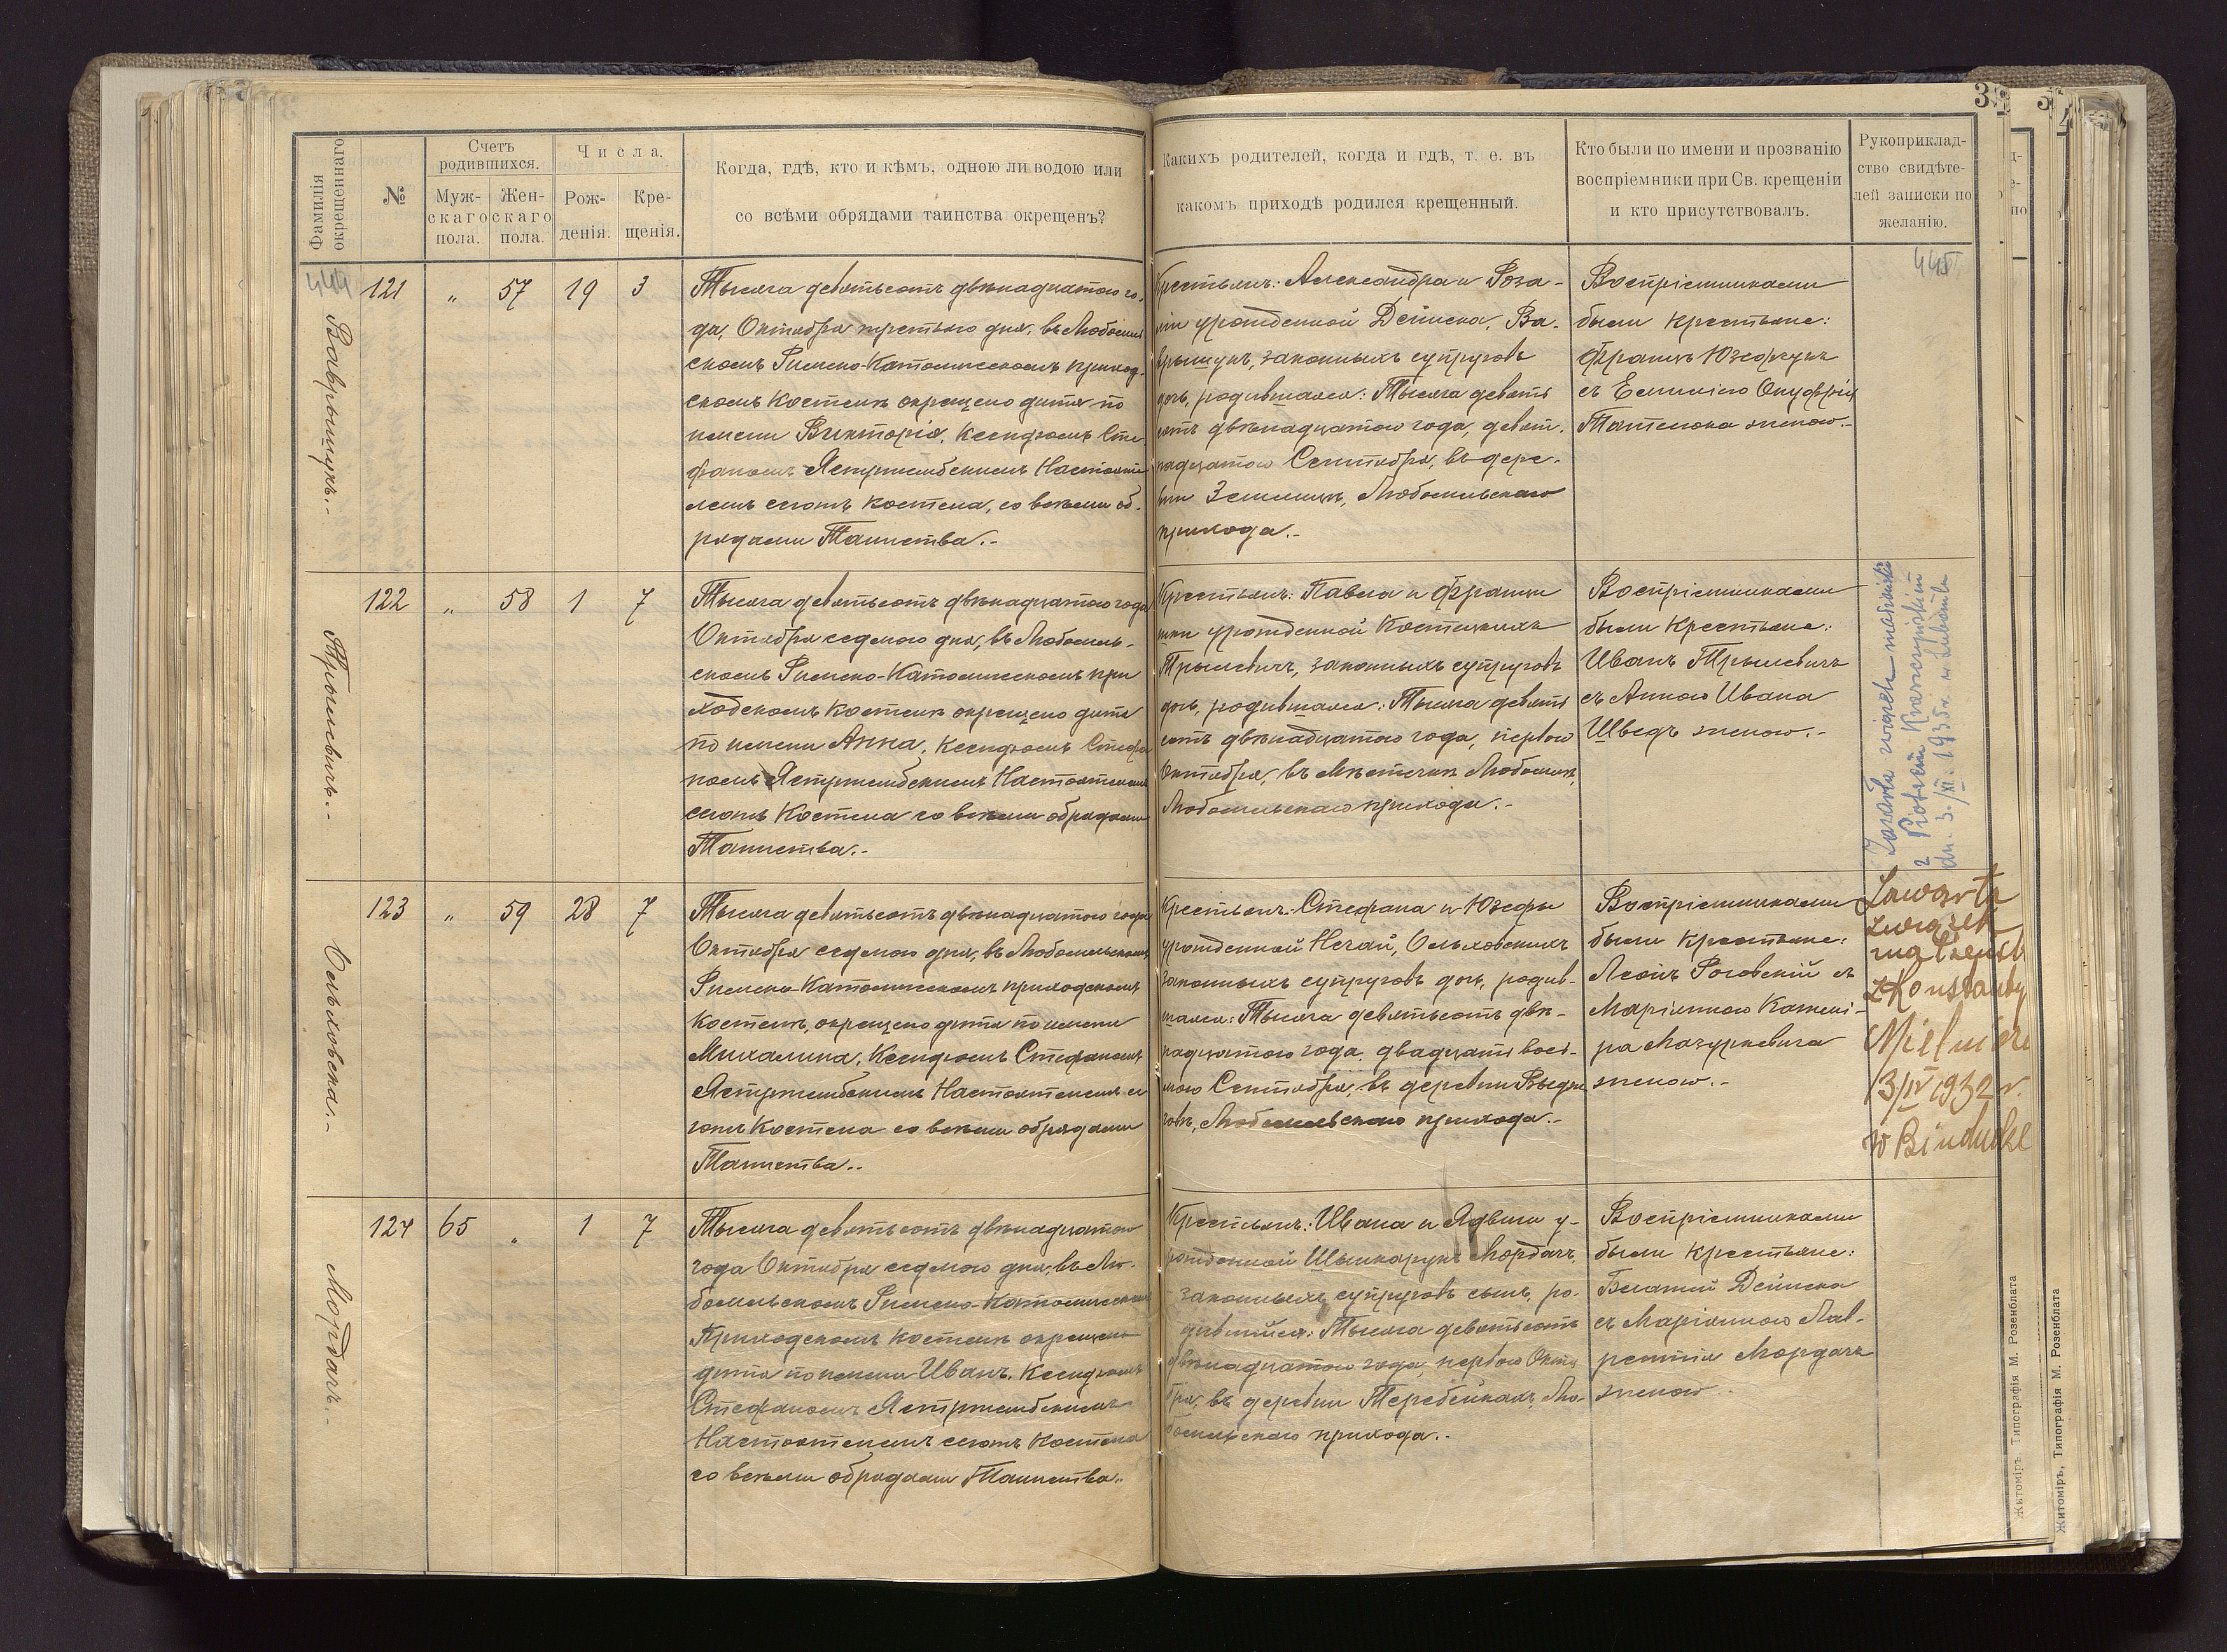 Фамилія окрещеннаго
№
Счетъ родившихся.
Мужскаго пола.
Женскаго пола.
Числа.
Рожденія.
Крещенія.
Когда, гдѣ, кто и кѣмъ, одною ли водою или
со всѣми обрядами таинства окрещенъ?
Какихъ родителей, когда и гдѣ, т. е. въ
какомъ приходѣ родился крещенный.
Кто были по имени и прозванію
воспріемники при Св. крещеніи
и кто присутствовалъ.
Рукоприклад-
ство свидѣте-
лей записки по
желанію.
444
Ваврыщукъ.-
121 „ 57 19 3
Тысяча девятьсотъ двѣнадцатого го-
да, Октября третьяго дня, въ Любомль
скомъ Римско-Католическомъ приход-
скомъ Костелѣ окрещено дитя по
имени Викторія, Ксендзомъ Сте
фаномъ Ястржембскимъ Настояте
лемъ сегожъ Костела, со всѣми об-
рядами Таинства.-
Крестьянъ: Александра и Роза-
ліи урожденной Дейнека, Ва-
врыщукъ, законныхъ супруговъ
дочь, родившаяся: Тысяча девять
сотъ двѣнадцатого года, девят-
надцатого Сентября, въ дере-
вни Землицѣ, Любомльскаго
прихода.-
Воспріемниками
были Крестьяне:
Францъ Юзефчукъ
съ Емиліею Онуфрія
Пантелюка женою.-
445
Трылевичъ.-
122 „ 58 1 7
Тысяча девятьсотъ двѣнадцатого года
Октября седмого дня, въ Любомль-
скомъ Римско-Католическомъ при
ходскомъ Костелѣ окрещено дитя
по имени Анна, Ксендзомъ Стефа
номъ Ястржембскимъ Настоятелемъ
сегожъ Костела со всѣми обрядами
Таинства.-
Крестьянъ: Павла и Франци
шки урожденной Костецкихъ
Трылевичъ, законныхъ супруговъ
дочь, родившаяся: Тысяча девять
сотъ двѣнадцатого года, первого
Октября, въ Мѣстечкѣ Любомлѣ,
Любомльскаго прихода.-
Воспріемниками
были Крестьяне:
Иванъ Трылевичъ
съ Анною Ивана
Шведъ женою.-
Zawarła związek małżeński
z Piotrem
dn. 3./XI. 1935 r. w Lubomlu
Ольховска.-
123 „ 59 28 7
Тысяча девятьсотъ двѣнадцатого года
Октября седмого дня, въ Любомльскомъ
Римско-Католическомъ приходскомъ
Костелѣ, окрещено дитя по имени
Михалина, Ксендзомъ Стефаномъ
Ястржембскимъ Настоятелемъ се
гожъ Костела со всѣми обрядами
Таинства..
Крестьянъ: Стефана и Юзефы
урожденной Нечай, Ольховскихъ
законныхъ супруговъ дочь, родив-
шаяся: Тысяча девятьсотъ двѣ-
надцатого года, двадцать вось-
мого Сентября, въ деревни
Любомльскаго прихода.-
Воспріемниками
были Крестьяне:
Леонъ Роговскій съ
Маріанною Казими-
ра Мазуркевича
женою.-
Zawarła
związek
małżeńs
z Konstanty
Mielnicz
13/IV 1932 r.
w Binduże
Мордачъ.-
124 65 „ 1 7
Тысяча девятьсотъ двѣнадцатого
года Октября седмого дня, въ Лю-
бомльскомъ Римско-Католическомъ
Приходскомъ Костелѣ окрещено
дитя по имени Иванъ, Ксендзомъ
Стефаномъ Ястржембскимъ
Настоятелемъ сегожъ Костела
со всѣми обрядами Таинства..
Крестьянъ: Ивана и Ядвиги у-
рожденной Шинкарукъ Мордачъ,
законныхъ супруговъ сынъ, ро-
дившійся: Тысяча девятьсотъ
двѣнадцатого года, первого Октя
бря, въ деревни Теребейкахъ, Лю-
бомльскаго прихода.-
Воспріемниками
были Крестьяне:
Дейнека
съ Маріанною Лав-
рентія Мордача
женою.-
Житоміръ, Типографія М. Розенблата
Житоміръ, Типографія М. Розенблата